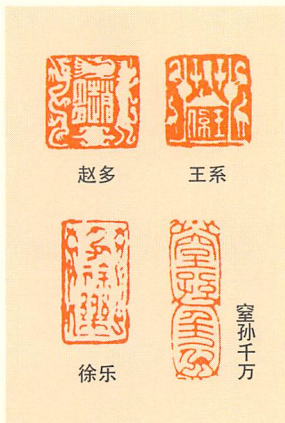 赵多
王系
徐乐
窒孙千万